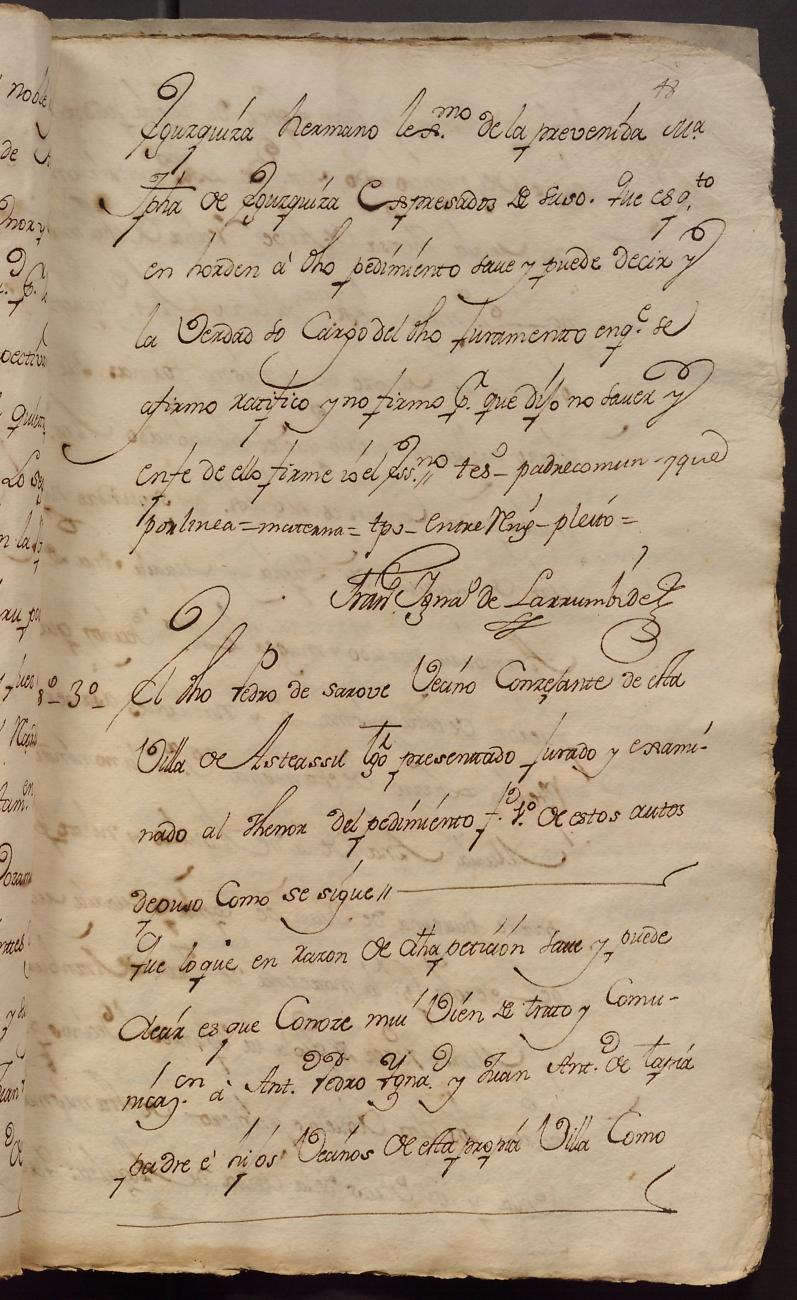 48
Ygurquiza hermano lex.mo de la prevenida Ma
pha de Ygurquiza Expresados de suso. Que es q.to
en horden â dho pedimiento save y puede decir y
la Verdad so Cargo del dho Juramento en q.e se
afirmo ratifico y no firmo P.r que dijo no saver y
en fe de ello firme io el Ess.no tes.o - padre comun - y que
por linea = materna = tpo - Entre Reng.s - pleito =
Fran.co Ygna.o de Larrumbide
t.o 3.o El dho Pedro de sarove Vecino Conzejante de esta
Villa de Asteassu t.go presentado jurado y exami-
nado al thenor del pedimiento f.o 1.o de estos autos
depuso Como se sigue //
Que lo que en razon de dha peticion save y puede
decir es que Conoze mui Vien de trato y Comu-
nicaz.on â Ant.o Pedro Ygna.o y Juan Ant.o de tapia
padre è hijos Vecinos de esta propia Villa Como